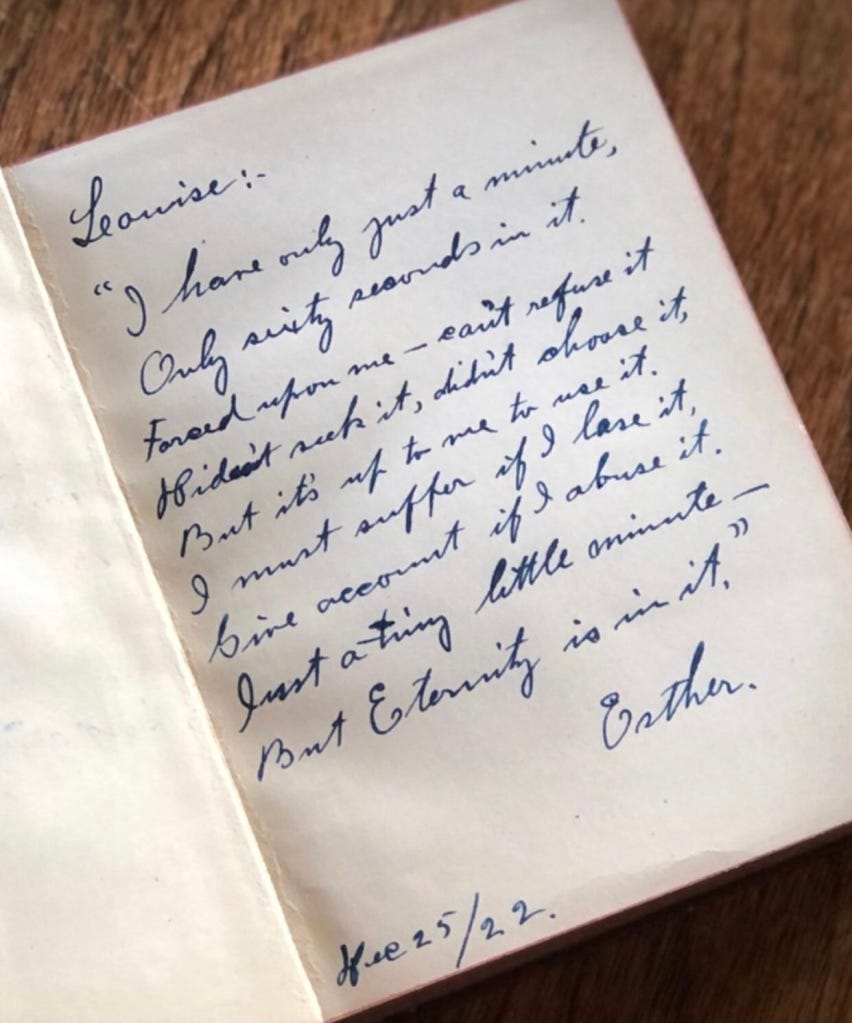 Leouise:-
"I have only just a minute,
Only sixty seconds in it.
Forced upon me – can't refuse it
Didn't seek it, didn't choose it,
But it's up to me to use it.
I must suffer if I lose it,
Give account if I abuse it.
Just a tiny little minute –
But Eternity is in it."
Esther.
Dec 25/22.